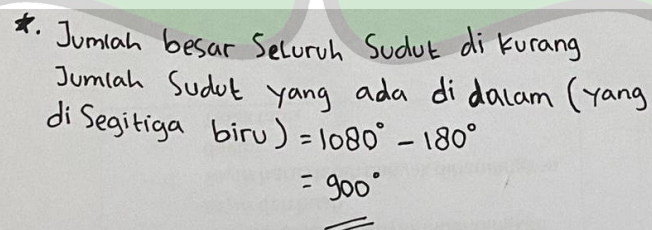 *. Jumlah besar Seluruh Sudut di kurang
Jumlah Sudut yang ada di dalam (yang
di Segitiga biru) = 1080° - 180°
= 900°